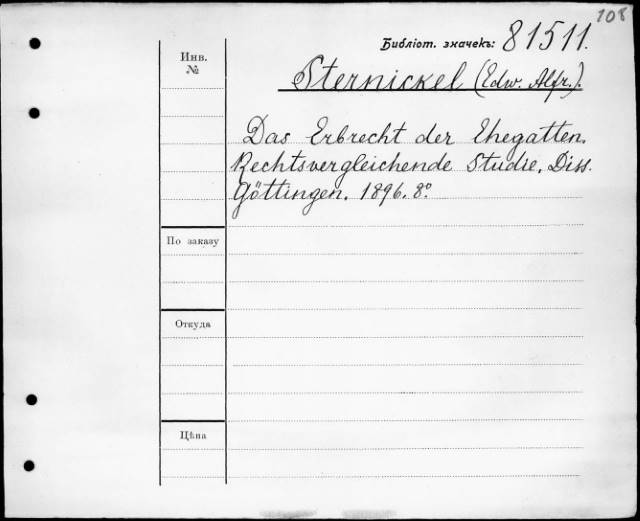 108
Библіот. значекъ: 81511.
Инв.
№
Sternickel (Edw. Alfr.).
Das Erbrecht der Ehegatten.
Rechtsvergleichende Studie. Diss.
Göttingen. 1896. 8°.
По заказу
Откуда
Цѣна